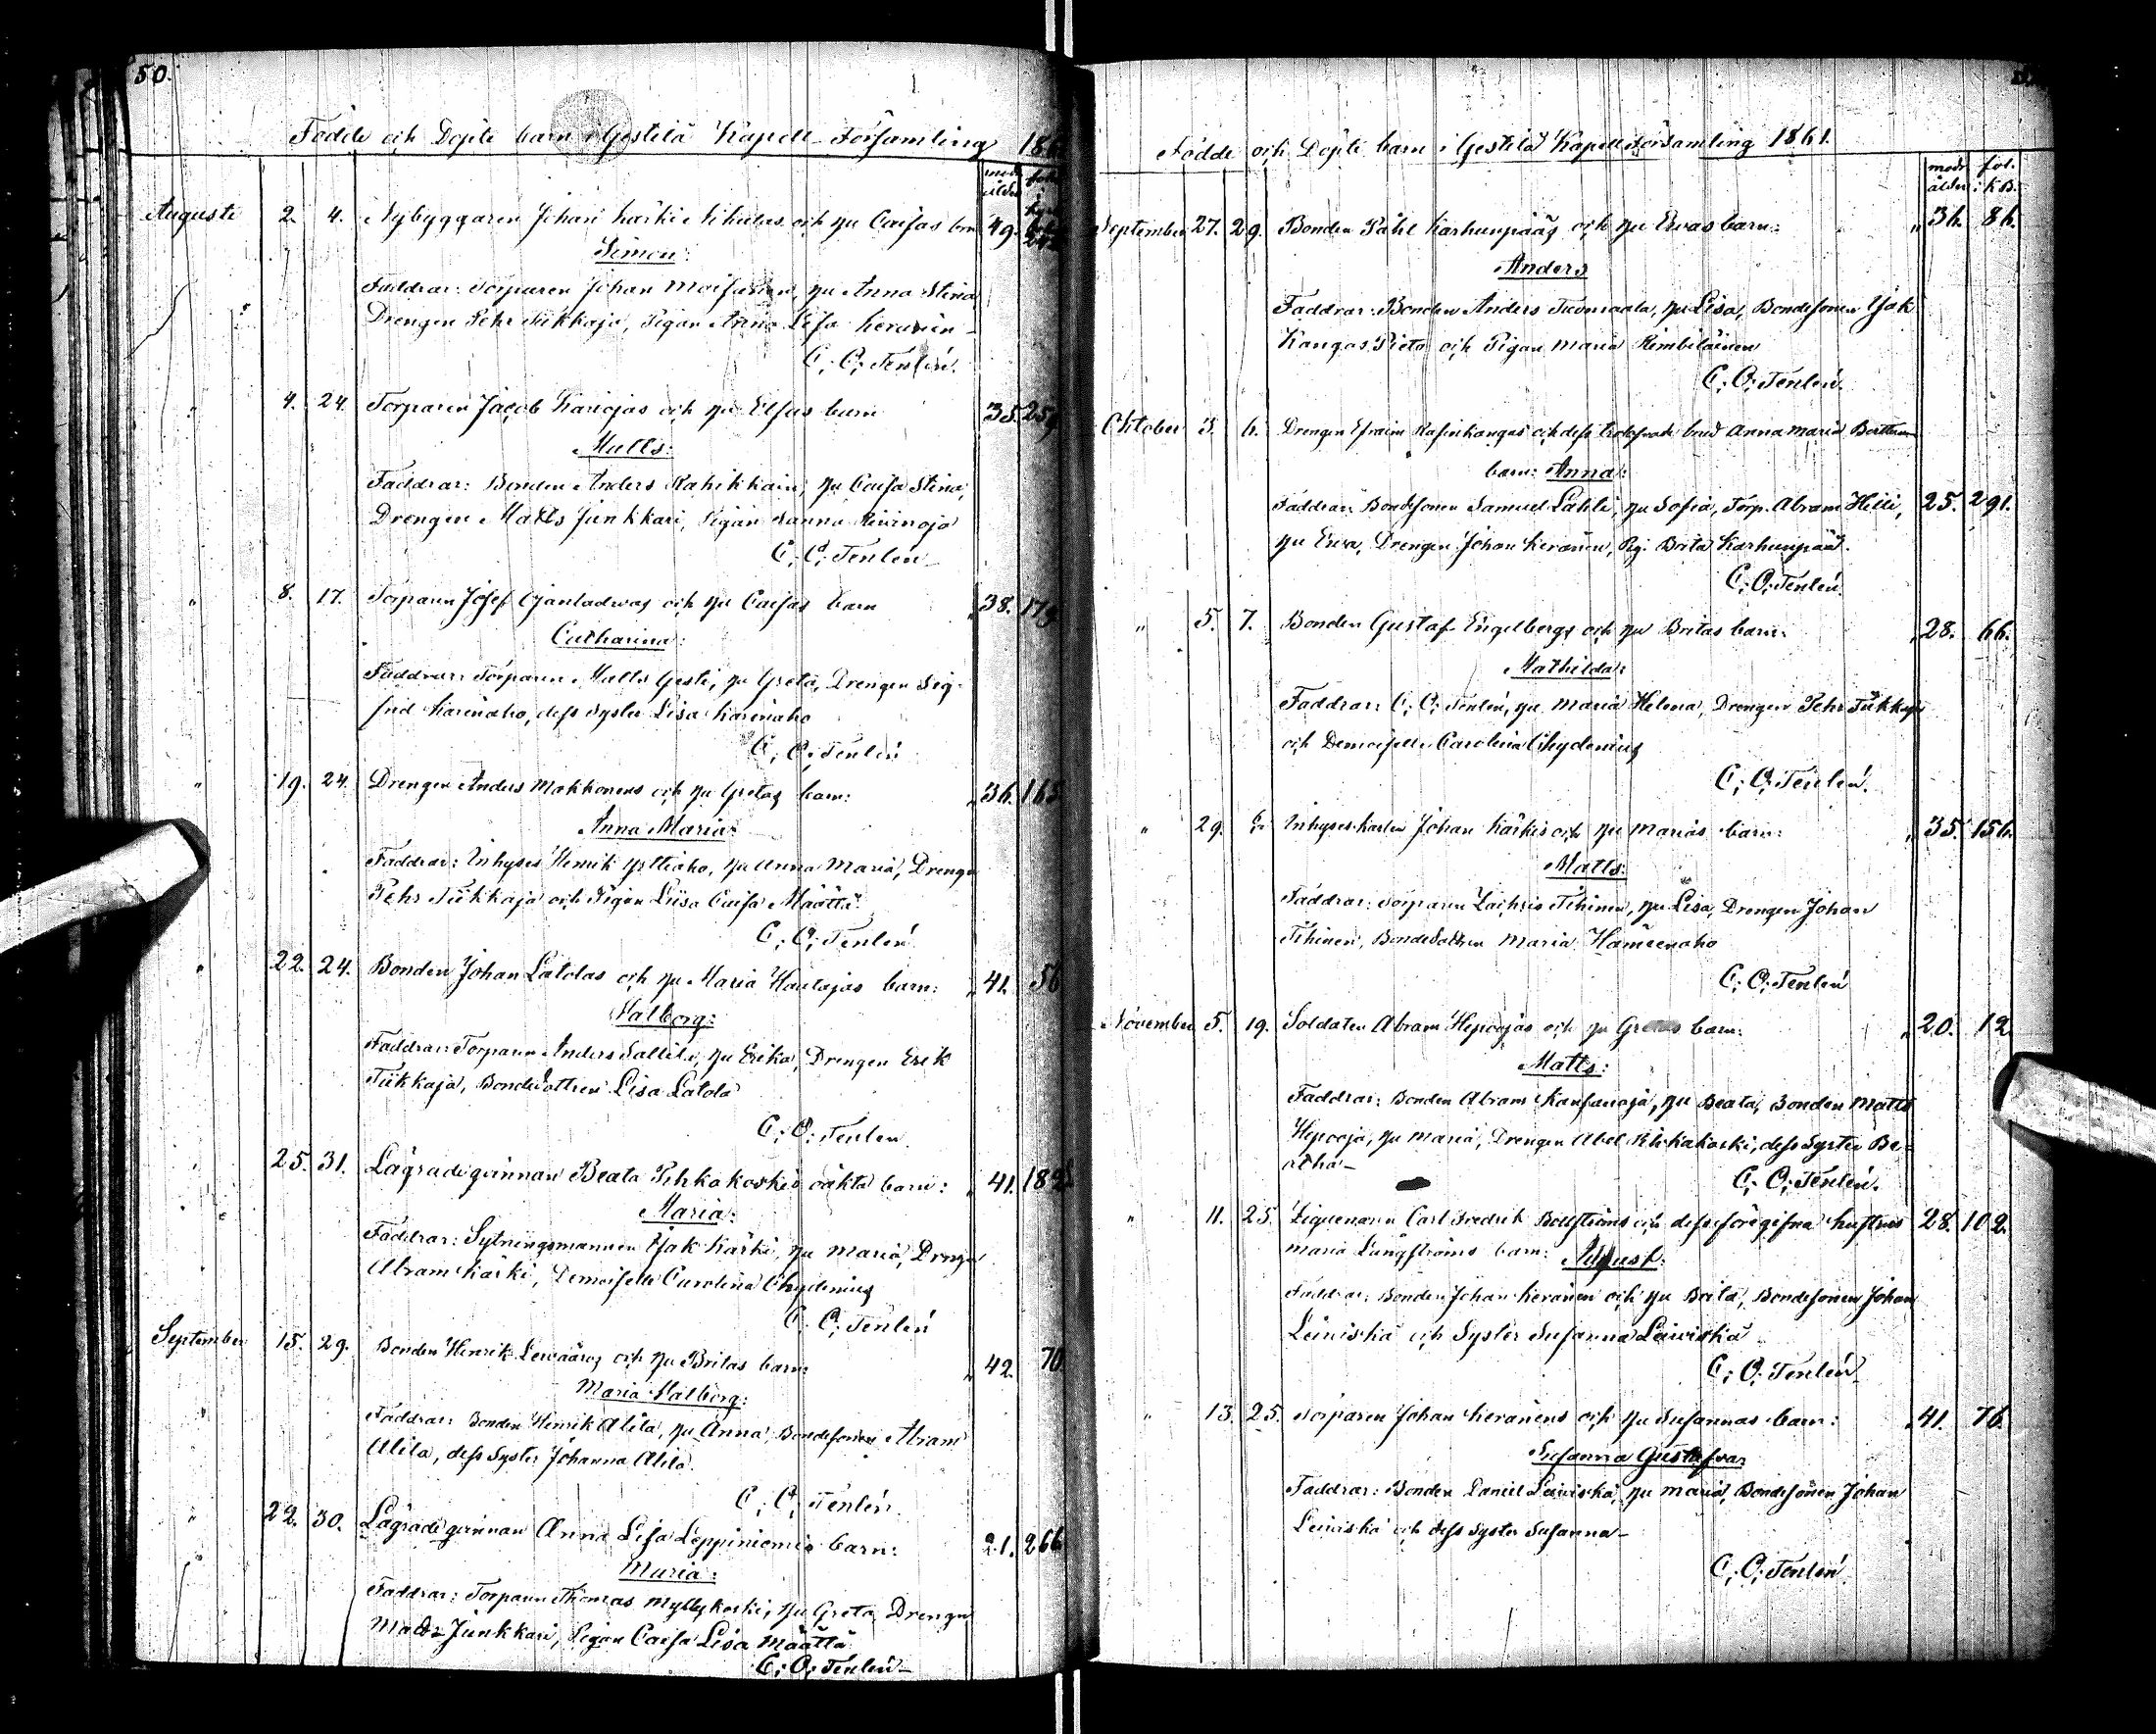 50.
Födde och Döpte barn i Gestilä Kapell-Församling 186
mod. ålder
Augusti 2. 4. Nybyggaren Johan Kärki Nikulas och hu Caisas barn 49.
Simon:
Faddrar: Torparen Johan Moisanen, hu Anna Stina,
Drengen Pehr Tiikkaja, Pigan Anna Lisa Keränen
C. O. Tenlén.
" 4. 24. Torparen Jacob Kariojas och hu Elsas barn 35. 259
Matts:
Faddrar: Bonden Anders Rahikkain, hu Caisa Stina,
Drengen Matts Junkkari, Pigan Sanna Kivinoja
C. O. Tenlén
" 8. 17. Torparen Josef Ojanladwas och hu Caisas barn " 38. 179
Catharina:
Faddrar: Torparen Matts Gesti, hu Greta, Drengen Sig-
frid Karinaho, dess Syster Lisa Karinaho
C. O. Tenlén
" 19. 24. Drengen Anders Makkonens och hu Gretas barn: " 36. 165
Anna Maria:
Faddrar: Inhyses Henrik Yrttiaho, hu Anna Maria, Drengen
Pehr Tiikkaja och Pigan Liisa Caisa Määttä
C. O. Tenlén
" 22. 24. Bonden Johan Latolas och hu Maria Kautajas barn: " 41. 56
Walborg:
Faddrar: Torparen Anders Sallila, hu Erika, Drengen Erik
Tiikkaja, Bondedottren Lisa Latola
C. O. Tenlén
25. 31. Lägrade qvinnan Beata Pihkakoskis oäkta barn: " 41. 182
Maria:
Faddrar: Sytningsmannen Isak Kärki, hu Maria, Drengen
Abram Kärki, Demoiselle Carolina Chydenius
C. O. Tenlén
September 15. 29. Bonden Henrik Lewäärvs och hu Britas barn: " 42. 70
Maria Walborg:
Faddrar: Bonden Henrik Alila, hu Anna, Bondesonen Abram
Alila, dess Syster Johanna Alila.
C. O. Tenlén
" 22. 30. Lägrade qvinnan Anna Lisa Leppiniemis barn: 21. 266
Maria:
Faddrar: Torparen Thomas Myllykoski, hu Greta, Drengen
Matts Junkkari, Pigan Caisa Lisa Määttä
C. O. Tenlén
Födde och Döpte barn i Gestilä Kapellförsamling 1861.
modr ålder fol. i K.B.
September 27. 29. Bonden Påhl Karhunpääs och hu Ewas barn: " 36. 86.
Anders
Faddrar: Bonden Anders Tuomaala, hu Lisa, Bondesonen Isak
Kangas Pieta och Pigan Maria Kimbiläinen
C. O. Tenlén.
Oktober 3. 6. Drengen Efraim Rasinkangas och dess trolofwade brud Anna Maria
barn: Anna:
Faddrar: Bondesonen Samuel Lahti, hu Sofia, Torp. Abram Hilli, 25. 291.
hu Ewa, Drengen Johan Keränen, Pig. Brita Karhunpää.
C. O. Tenlén
" 5. 7. Bonden Gustaf Engelbergs och hu Britas barn: " 28. 66.
Mathilda:
Faddrar: C. O. Tenlén, hu Maria Helena, Drengen Pehr Tiikkaja
och Demoiselle Carolina Chydenius
C. O. Tenlén.
" 29. 6. Inhyseskarlen Johan Kärkis och hu Marias barn: " 35. 156.
Matts:
Faddrar: Torparen Zachris Tihinen, hu Lisa, Drengen Johan
Tihinen, Bondedottren Maria Hämeenaho
C. O. Tenlén
November 5. 19. Soldaten Abram Hepoojas och hu Gretas barn: " 20. 12
Matts:
Faddrar: Bonden Abram Kansanoja, hu Beata, Bonden Matts
Hepooja, hu Maria, Drengen Abel Pihkakoski, dess Syster Be-
atha
C. O. Tenlén.
" 11. 25. Ziguenaren Carl Fredrik Bollströms och dess föregifna hustrus 28. 102.
Maria Långströms barn: August:
Faddrar: Bonden Johan Keränen och hu Brita, Bondesonen Johan
Leiviskä och Syster Susanna Leiviskä
C. O. Tenlén
" 13. 25. Torparen Johan Keränens och hu Susannas barn: 41. 76.
Susanna Gustafva:
Faddrar: Bonden Daniel Leiviskä, hu Maria, Bondesonen Johan
Leiviskä och dess Syster Susanna
C. O. Tenlén